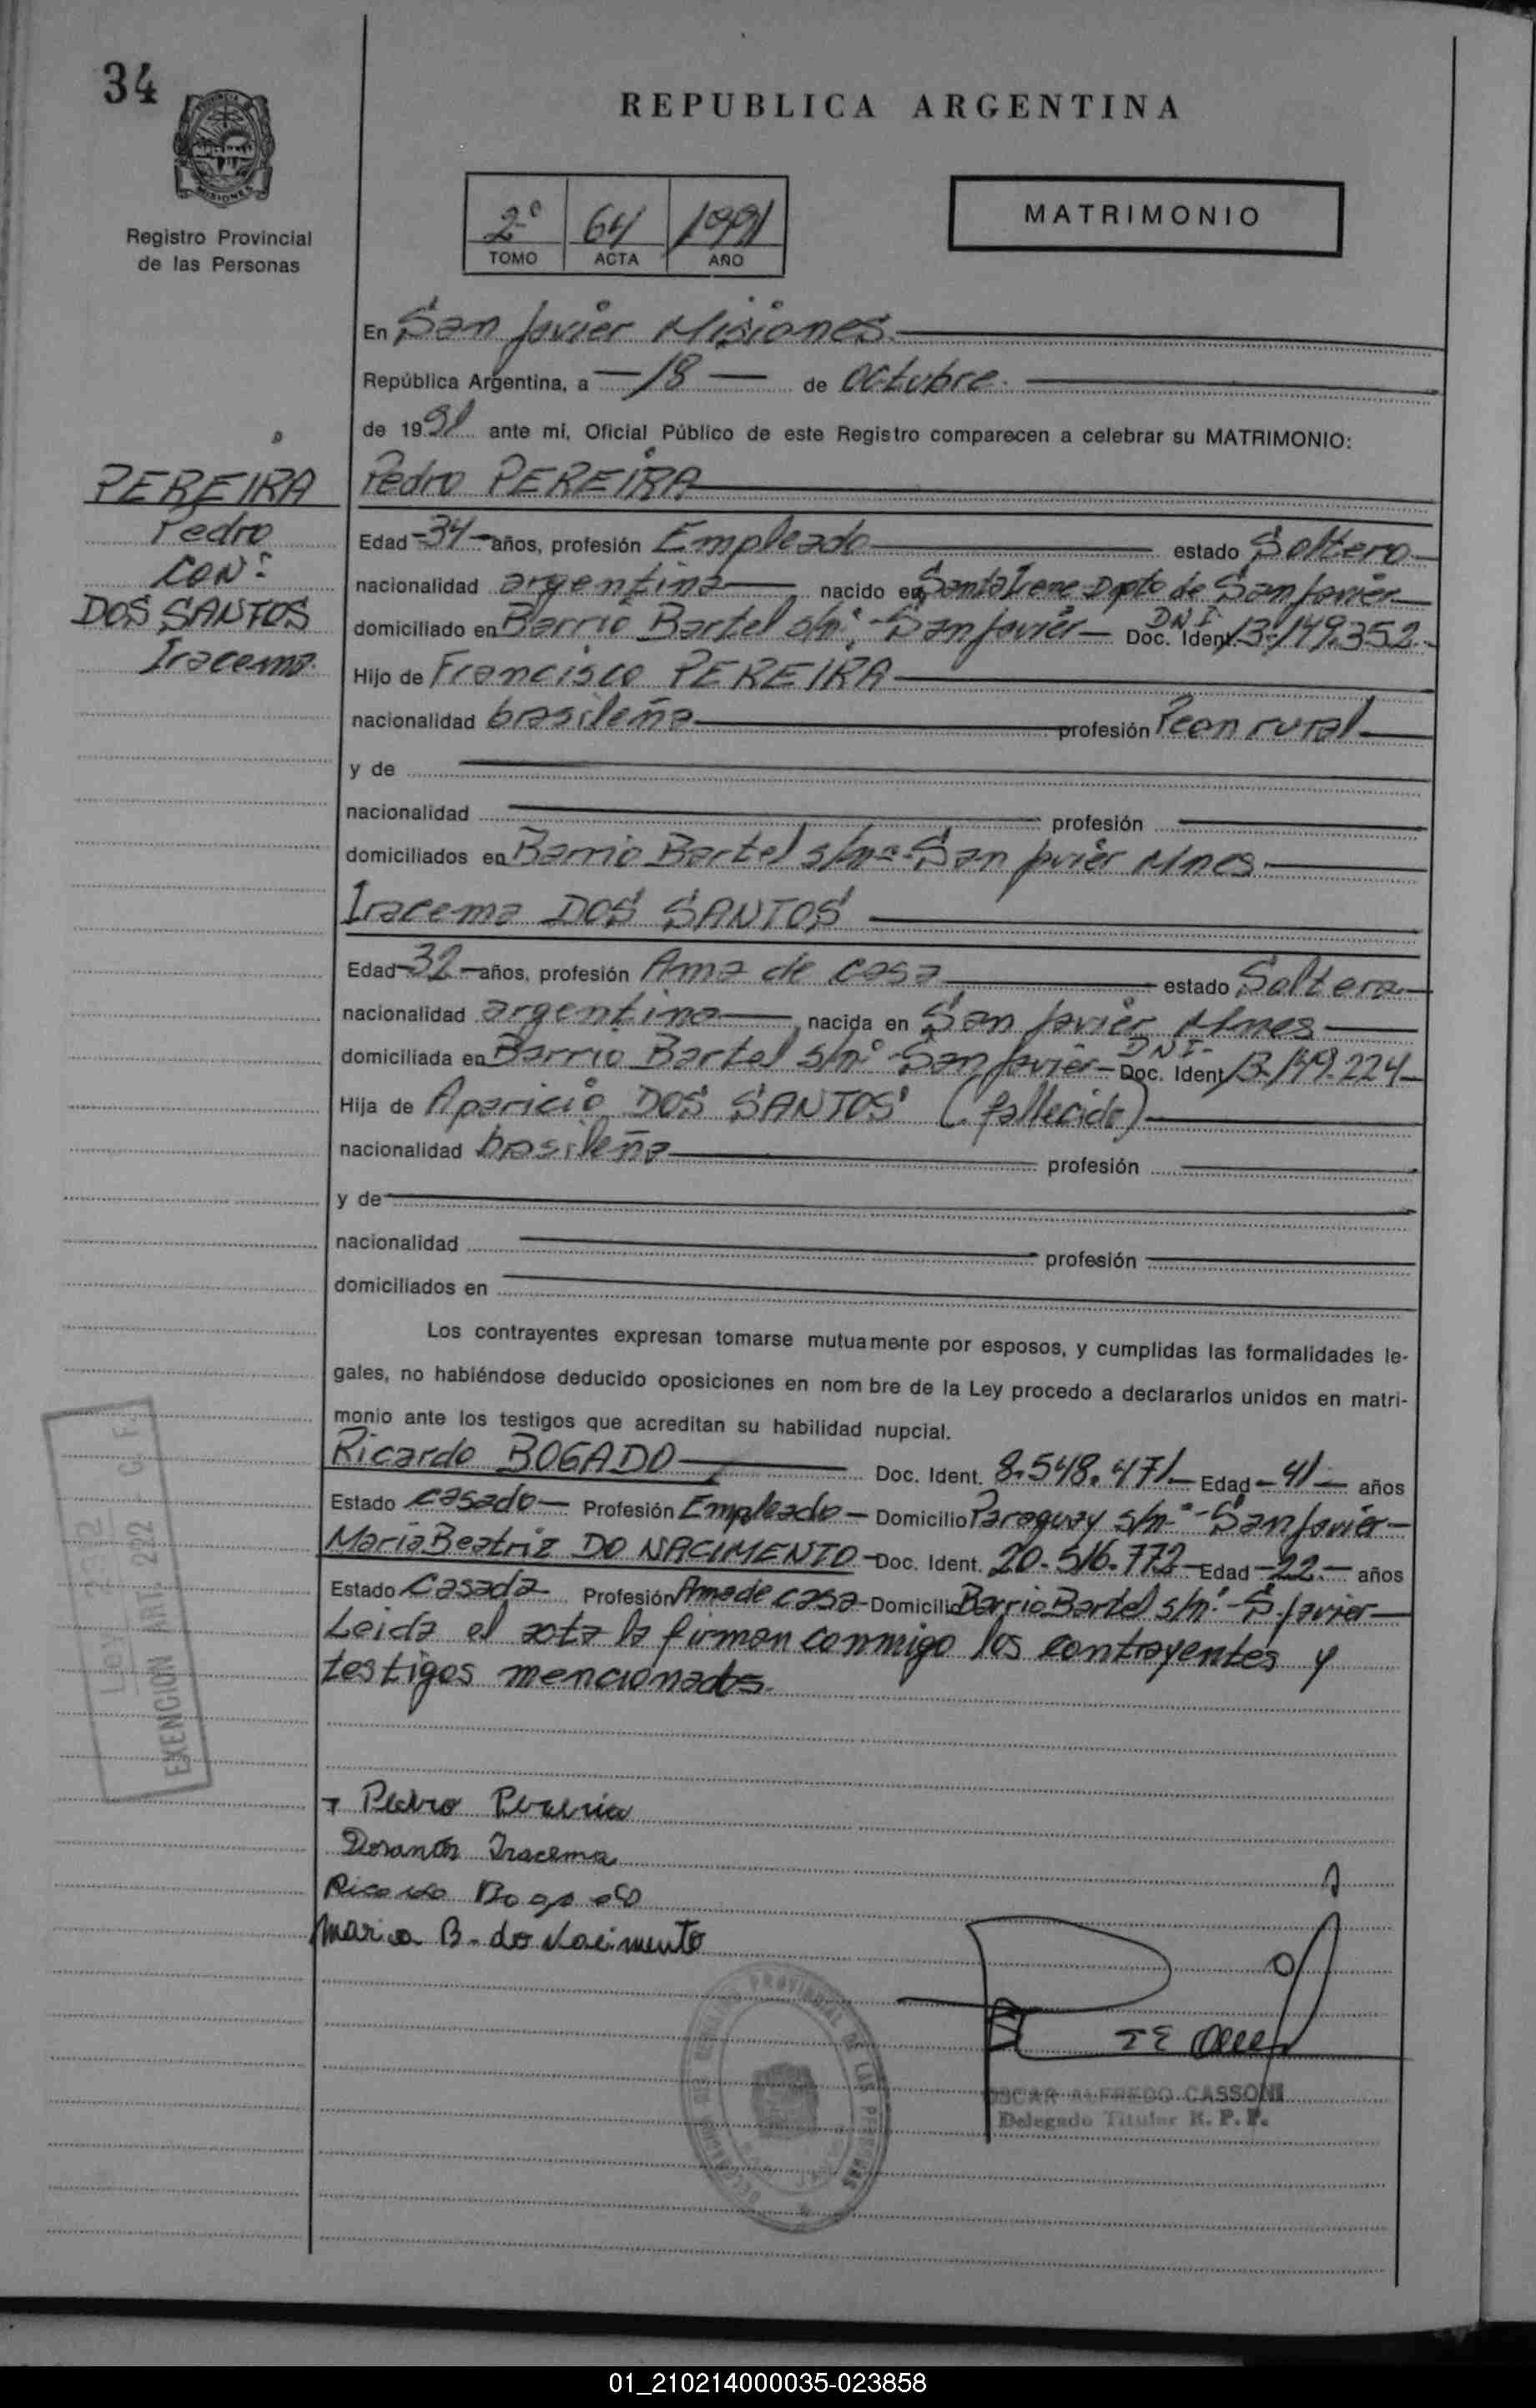 34
REPUBLICA ARGENTINA
MISIONES
Registro Provincial
de las Personas
2º 64 1991
TOMO ACTA AÑO
MATRIMONIO
En San Javier Misiones.
República Argentina, a 18 de Octubre.
de 1991 ante mí, Oficial Público de este Registro comparecen a celebrar su MATRIMONIO:
PEREIRA
Pedro
CON:
DOS SANTOS
Iracema.
Pedro PEREIRA
Edad 34 años, profesión Empleado estado Soltero
nacionalidad argentina nacido en Santa Irene Dpto de San Javier
domiciliado en Barrio Bartel s/nº - San Javier Doc. Ident. DNI 13.149.352.
Hijo de Francisco PEREIRA
nacionalidad brasileña profesión Peon rural
y de
nacionalidad profesión
domiciliados en Barrio Bartel s/nº - San Javier Mnes
Iracema DOS SANTOS
Edad 32 años, profesión Ama de casa estado Soltera
nacionalidad argentina nacida en San Javier Mnes
domiciliada en Barrio Bartel s/nº - San Javier Doc. Ident. DNI 13.149.224
Hija de Aparicio DOS SANTOS (fallecido)
nacionalidad brasileña profesión
y de
nacionalidad profesión
domiciliados en
Los contrayentes expresan tomarse mutuamente por esposos, y cumplidas las formalidades le-
gales, no habiéndose deducido oposiciones en nom bre de la Ley procedo a declararlos unidos en matri-
monio ante los testigos que acreditan su habilidad nupcial.
Ricardo BOGADO Doc. Ident. 8.548.471 Edad 41 años
Estado casado Profesión Empleado Domicilio Paraguay s/nº - San Javier
Maria Beatriz DO NACIMENTO Doc. Ident. 20.516.772 Edad 22 años
Estado Casada Profesión Ama de casa Domicilio Barrio Bartel s/nº - S. Javier
Leida el acta la firman conmigo los contrayentes y
testigos mencionados.
EXENCION ART. 222
Pedro Pereira
Dosantos Iracema
Ricardo Bogado
Maria B. do Nacimento
OSCAR ALFREDO CASSONI
Delegado Titular R. P. P.
PROVINCIAL DE LAS PERSONAS
01_210214000035-023858